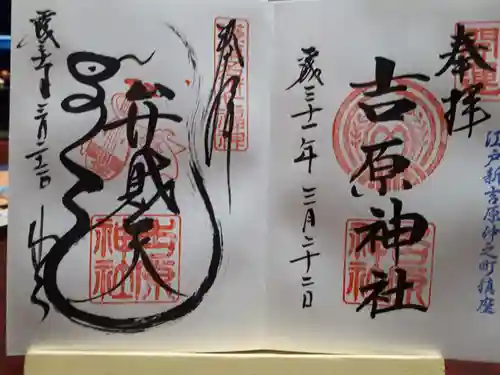 開運
奉拝
江戸新吉原仲之町鎮座
吉原神社
吉原神社
歳三十一年三月二十二日
奉拝
弁財天
吉原神社
三月二十二日